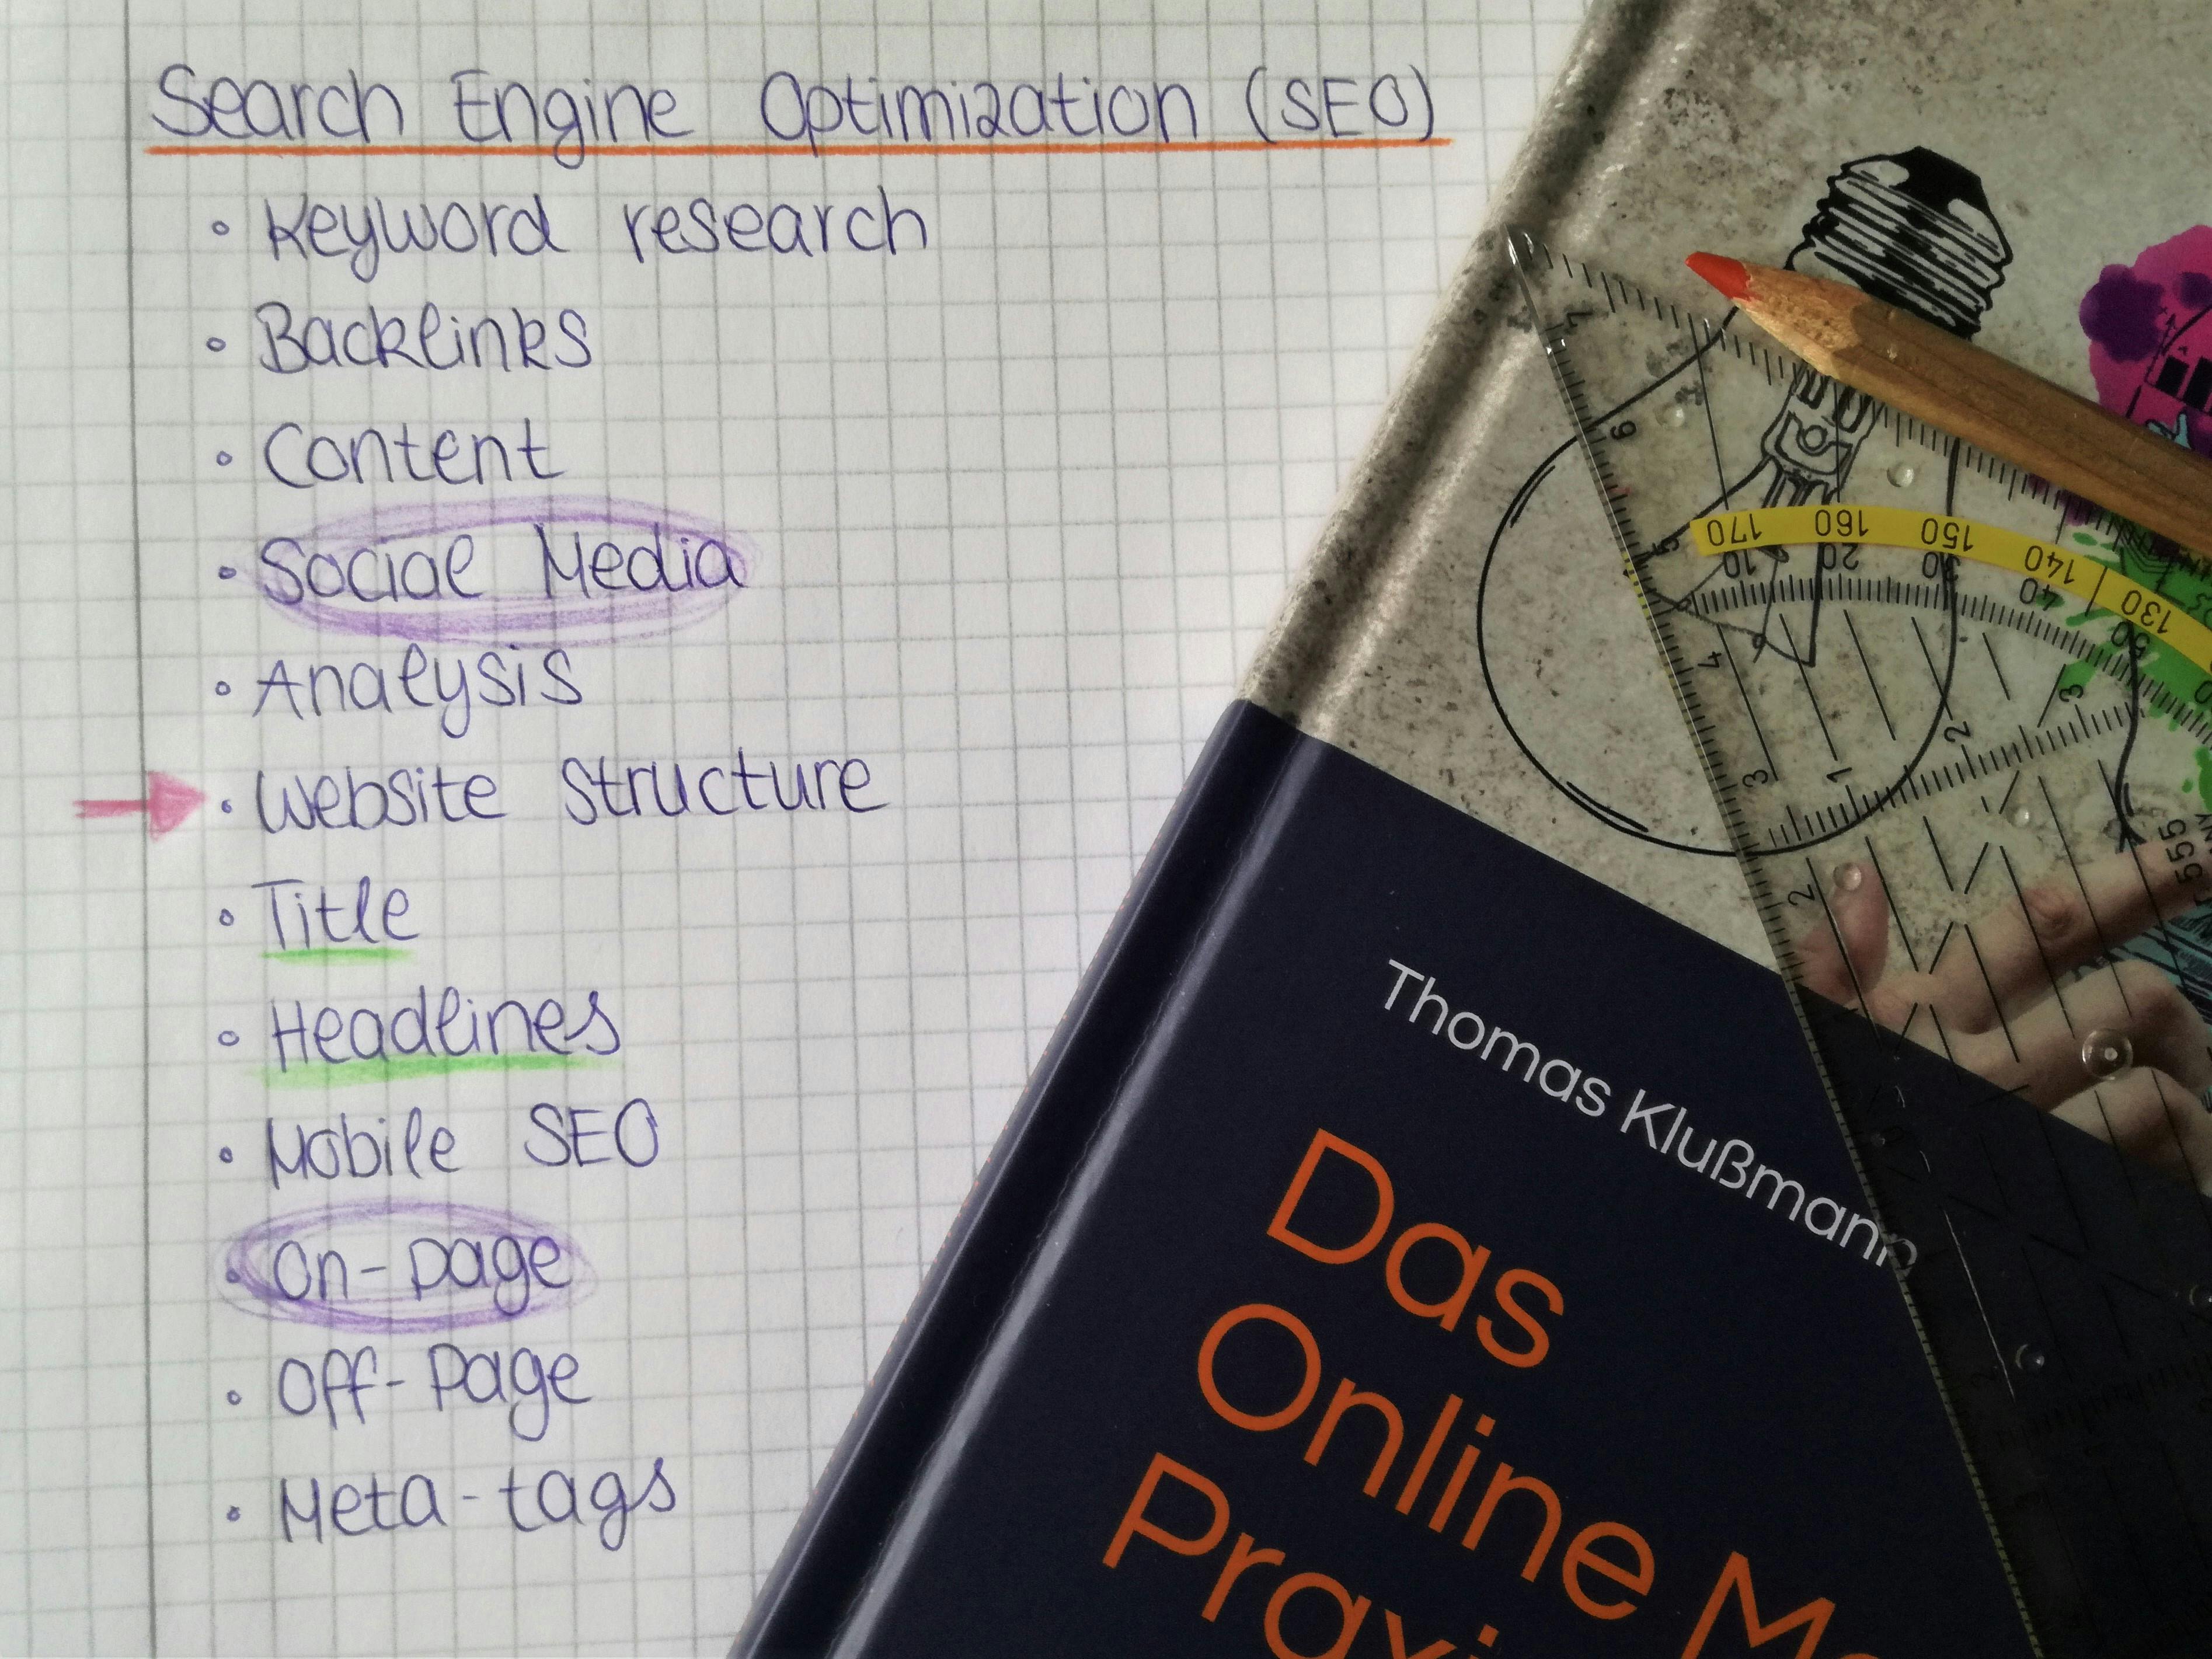 Search Engine Optimization (SEO)
• Keyword research
• Backlinks
• Content
• Social Media
• Analysis
• Website structure
• Title
• Headlines
• Mobile SEO
• On-page
• Off-page
• Meta-tags
Thomas Klußmann
Das
Online
170 160 150 140 130
10 20 30 40 50
7
6
5
4
3
2
1 2 3
555